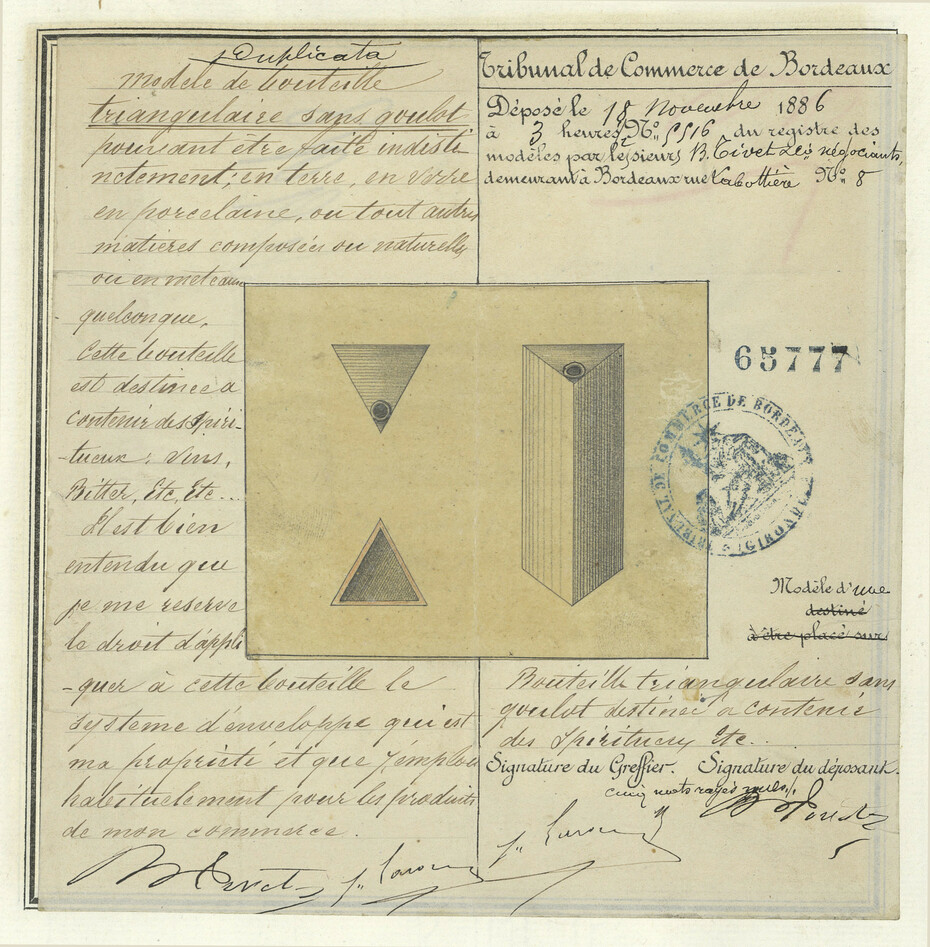 Duplicata
modèle de bouteille
triangulaire sans goulot
pouvant être faite indisti-
nctement; en terre, en verre
en porcelaine, ou tout autres
matières composées ou naturelle
ou en meteaux
quelconque.
Cette bouteille
est destinée a
contenir des Spiri-
-tueux: Vins,
Bitter, Etc, Etc...
Il est bien
entendu que
je me reserve
le droit d'appli
-quer à cette bouteille le
système d'enveloppe qui est
ma propriété et que j'emploi
habituellement pour les produits
de mon commerce.
Tribunal de Commerce de Bordeaux
Déposé le 18 Novembre 1886
à 3 heures No. 5516 du registre des
modèles par les sieurs B. Tivet & Cie négociants,
demeurant à Bordeaux rue Labottière No. 8
65777
TRIBUNAL DE COMMERCE DE BORDEAUX (GIRONDE)
Modèle d'une
destiné
à être placé sur
Bouteille triangulaire sans
goulot destinée a contenir
des Spiritueux Etc..
Signature du Greffier. Signature du déposant.
cinq mots rayés nuls